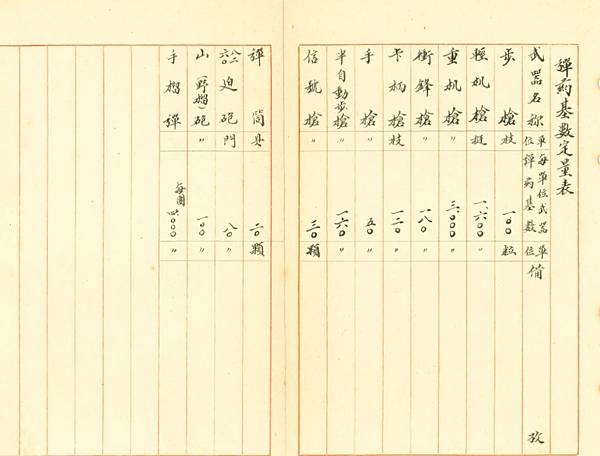 彈葯基數定量表
武器名称 單位 每單位武器彈葯基數 單位 備攷
步槍 枝 一〇〇 粒
輕机槍 挺 一、六〇〇 〃
重机槍 〃 三、〇〇〇 〃
衝鋒槍 〃 一八〇 〃
卡柄槍 枝 一二〇 〃
手槍 〃 五〇 〃
半自動步槍 〃 一六〇 〃
信號槍 〃 三〇 顆
彈筒 具 二〇 顆
八二六〇迫砲 門 八〇 〃
山(野榴)砲 〃 一〇〇 〃
手榴彈 每團 四、〇〇〇 〃